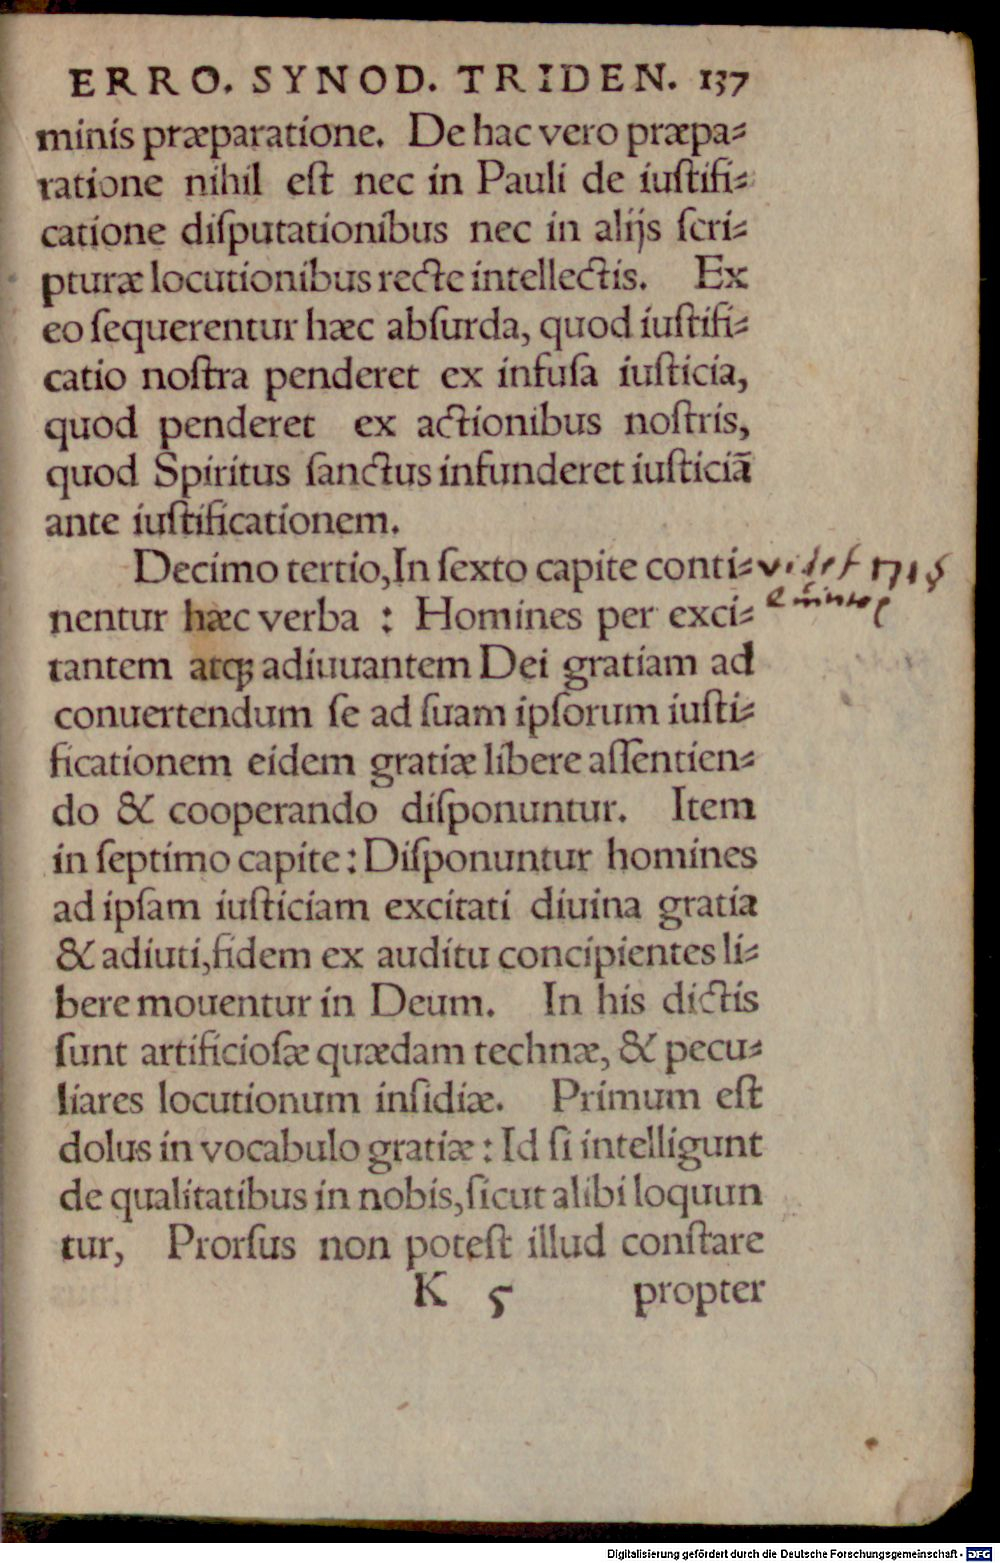 ERRO. SYNOD. TRIDEN. 137
minis præparatione. De hac vero præpa⸗
ratione nihil eſt nec in Pauli de iuſtifi⸗
catione diſputationibus nec in alijs ſcri⸗
pturæ locutionibus recte intellectis. Ex
eo ſequerentur hæc abſurda, quod iuſtifi⸗
catio noſtra penderet ex infuſa iuſticia,
quod penderet ex actionibus noſtris,
quod Spiritus ſanctus infunderet iuſticiā
ante iuſtificationem.
Decimo tertio, In ſexto capite conti⸗
nentur hæc verba : Homines per exci⸗
tantem atq; adiuuantem Dei gratiam ad
conuertendum ſe ad ſuam ipſorum iuſti⸗
ficationem eidem gratiæ libere aſſentien⸗
do & cooperando diſponuntur. Item
in ſeptimo capite : Diſponuntur homines
ad ipſam iuſticiam excitati diuina gratia
& adiuti, fidem ex auditu concipientes li⸗
bere mouentur in Deum. In his dictis
ſunt artificioſæ quædam technæ, & pecu⸗
liares locutionum inſidiæ. Primum eſt
dolus in vocabulo gratiæ : Id ſi intelligunt
de qualitatibus in nobis, ſicut alibi loquun
tur, Prorſus non poteſt illud conſtare
K 5 propter
Digitalisierung gefördert durch die Deutsche Forschungsgemeinschaft - DFG